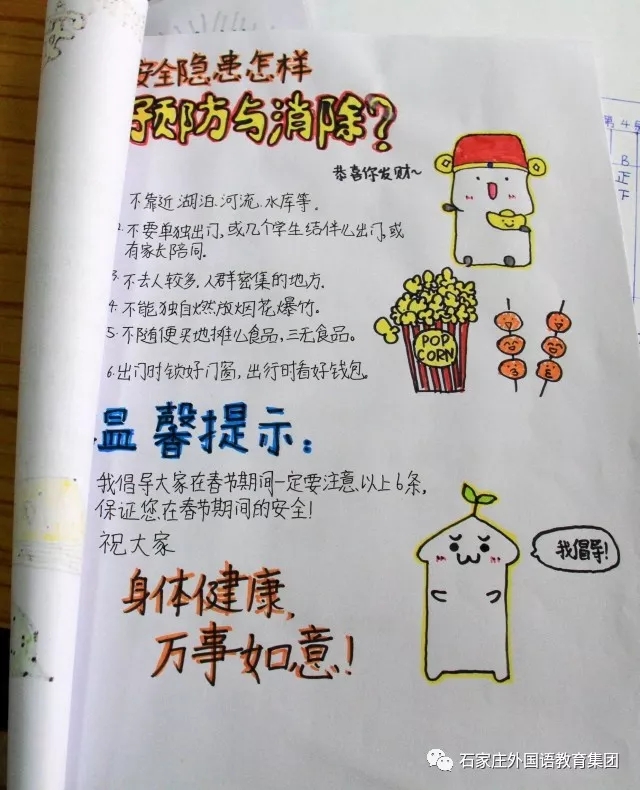 安全隐患怎样
预防与消除?
恭喜你发财~
不靠近湖泊、河流、水库等。
2. 不要单独出门,或几个学生结伴儿出门,或
有家长陪同。
3. 不去人较多,人群密集的地方。
4. 不能独自燃放烟花爆竹。
5. 不随便买地摊儿食品,三无食品。
6. 出门时锁好门窗,出行时看好钱包。
POP
CORN
温馨提示:
我倡导大家在春节期间一定要注意以上6条,
保证您在春节期间的安全!
祝大家
我倡导!
身体健康,
万事如意!
第4
B
正
下
石家庄外国语教育集团